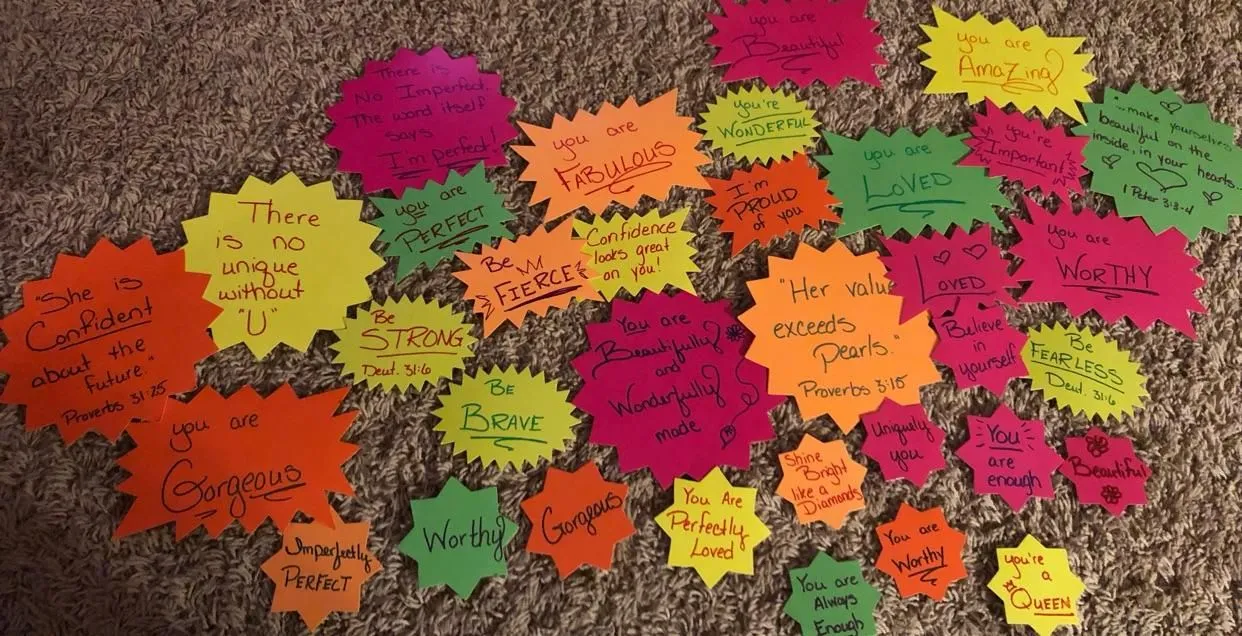 you are
Beautiful
you are
AmaZing
There is
No Imperfect.
The word itself
says
I'm perfect!
you are
FABULOUS
you're
WONDERFUL
"...make yourselves
beautiful on the
inside, in your hearts...
1 Peter 3:3-4
you're
Important
you are
LOVED
I'm
PROUD
of you
you are
PERFECT
There
is no
unique
without
"U"
Be
FIERCE
Confidence
looks great
on you!
you are
WORTHY
LOVED
"She is
Confident
about the
future."
Proverbs 31:25
Be
STRONG
Deut. 31:6
You are
Beautifully
and
Wonderfully
made
"Her value
exceeds
Pearls."
Proverbs 3:15
Believe
in
yourself
Be
FEARLESS
Deut. 31:6
you are
Gorgeous
BE
BRAVE
Uniquely
you
You
are
enough
Beautiful
Shine
Bright
like a
Diamonds
Imperfectly
PERFECT
Worthy
Gorgeous
You Are
Perfectly
Loved
You are
Worthy
You are
Always
Enough
you're
a
QUEEN